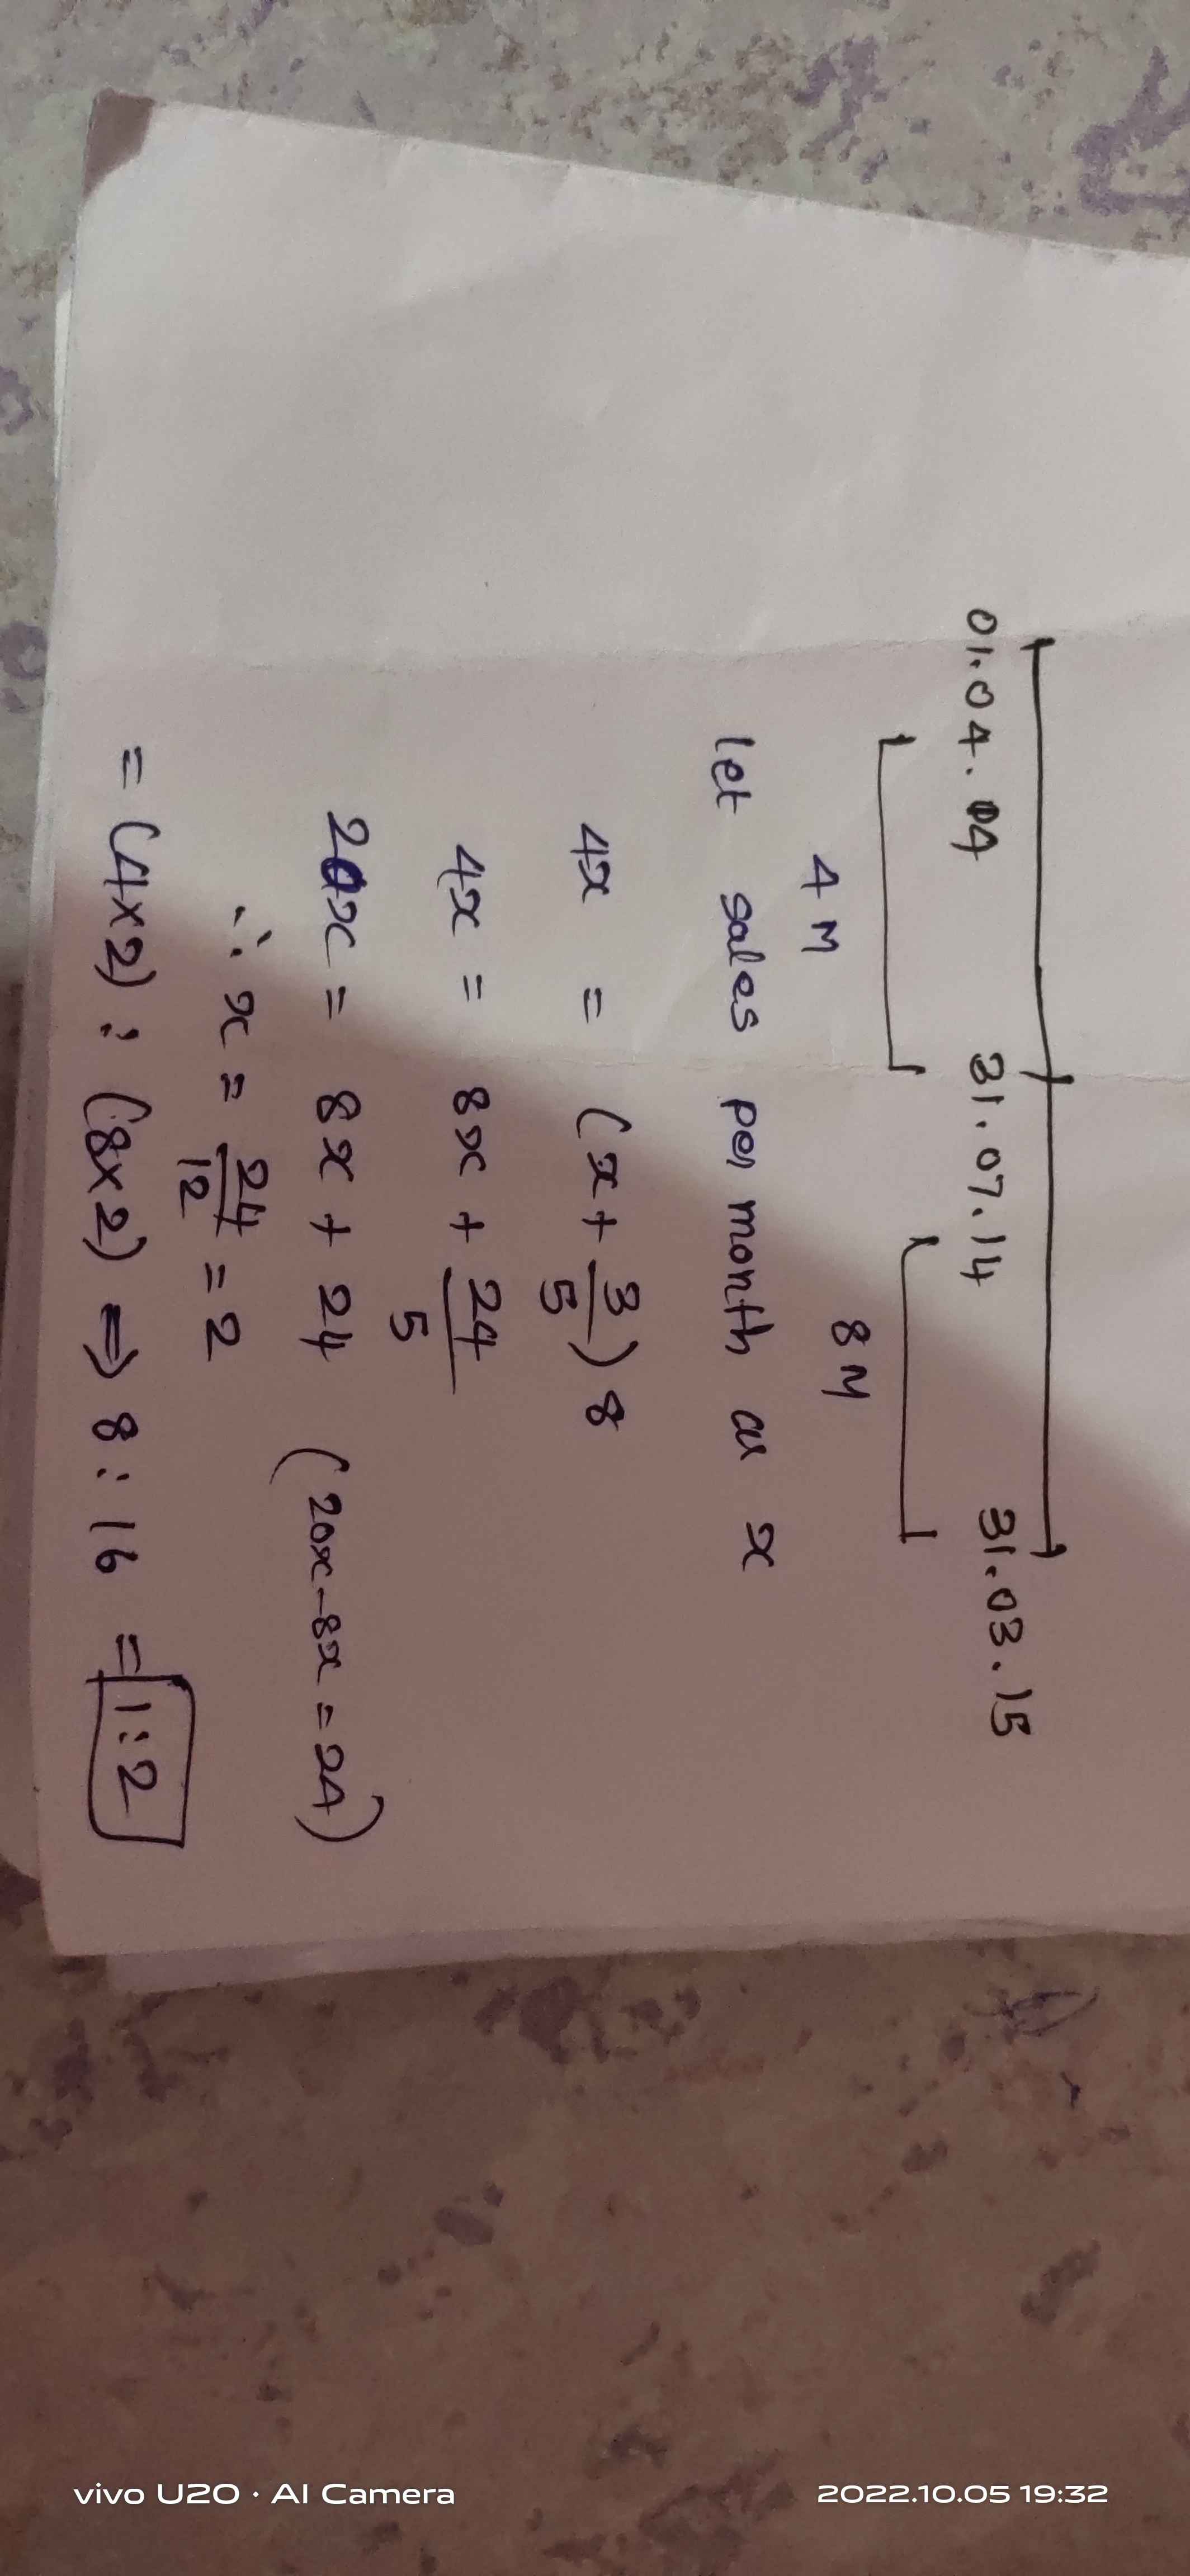 01.04.14 31.07.14 31.03.15
4 M 8 M
let sales per month as x
4x = (x + 3/5) 8
4x = 8x + 24/5
20x = 8x + 24 (20x-8x = 24)
∴ x = 24/12 = 2
= (4x2) : (8x2) ⇒ 8 : 16 = 1:2
vivo U20 · AI Camera 2022.10.05 19:32